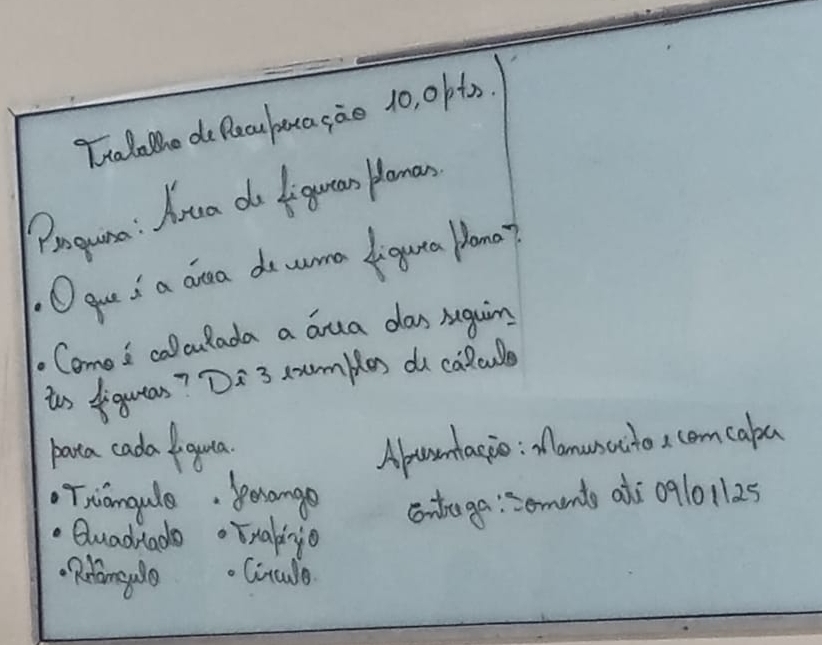 Trabalho de Recuperação 10,0pts.
Pesquisa: Área de figuras planas.
• O que é a área de uma figura plana?
• Como é calculada a área das seguin-
tes figuras? Dê 3 exemplos de cálculo
para cada figura.
• Triângulo • Losango
• Quadrado • Trapézio
• Retângulo • Círculo.
Apresentação: Manuscrito e com capa
Entrega: Somente até 09/01/25